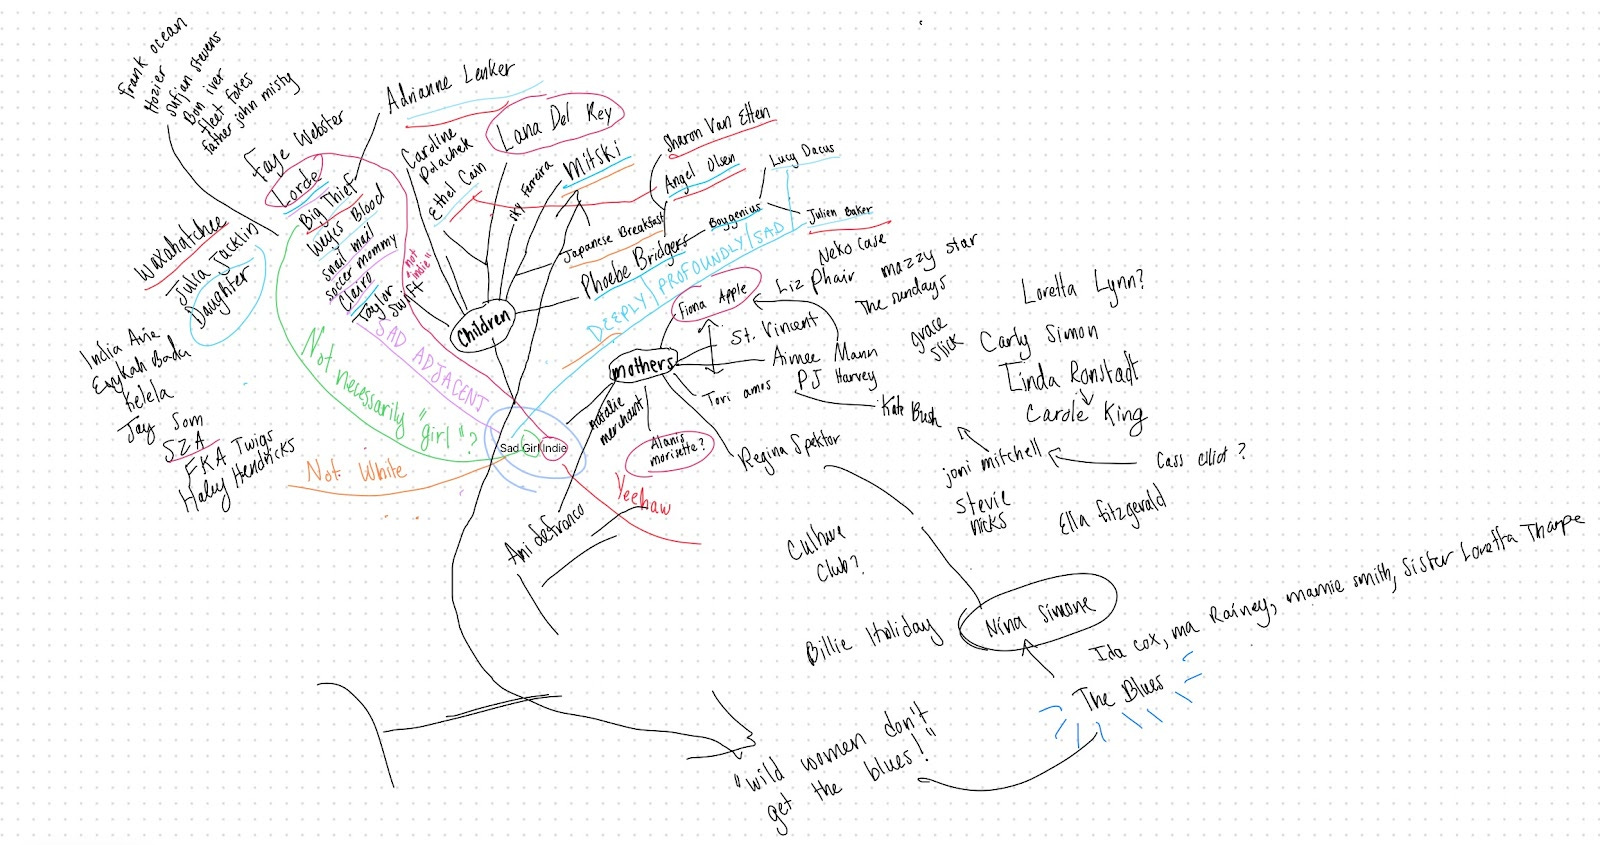 frank ocean
Hozier
sufjan stevens
Bon iver
fleet foxes
father john misty
Adrianne Lenker
Faye Webster
Lorde
Big Thief
Weyes Blood
snail mail
soccer mommy
Clairo
Taylor
Swift
not
"indie"
Caroline
Polachek
Ethel Cain
Lana Del Rey
sky Ferreira
Mitski
Sharon Van Etten
Angel Olsen
Lucy Dacus
Japanese Breakfast
Boygenius
Julien Baker
Phoebe Bridgers
DEEPLY/PROFOUNDLY/SAD
Waxahatchee
Julia Jacklin
Daughter
Children
SAD ADJACENT
Not necessarily "girl"?
India Arie
Erykah Badu
Kelela
Jay Som
SZA
FKA Twigs
Haley Hendricks
Not White
Sad Girl Indie
Yeehaw
mothers
Fiona Apple
Neko Case
Liz Phair
mazzy star
The sundays
St. Vincent
Aimee Mann
PJ Harvey
Tori amos
Kate Bush
grace
slick
natalie
merchant
Alanis
morisette?
Regina Spektor
Ani deFranco
Loretta Lynn?
Carly Simon
Linda Ronstadt
Carole King
joni mitchell
Cass elliot?
Stevie
nicks
Ella fitzgerald
Culture
Club?
Billie Holiday
Nina Simone
Ida cox, ma Rainey, mamie smith, Sister Loretta Tharpe
The Blues
"wild women don't
get the blues!"